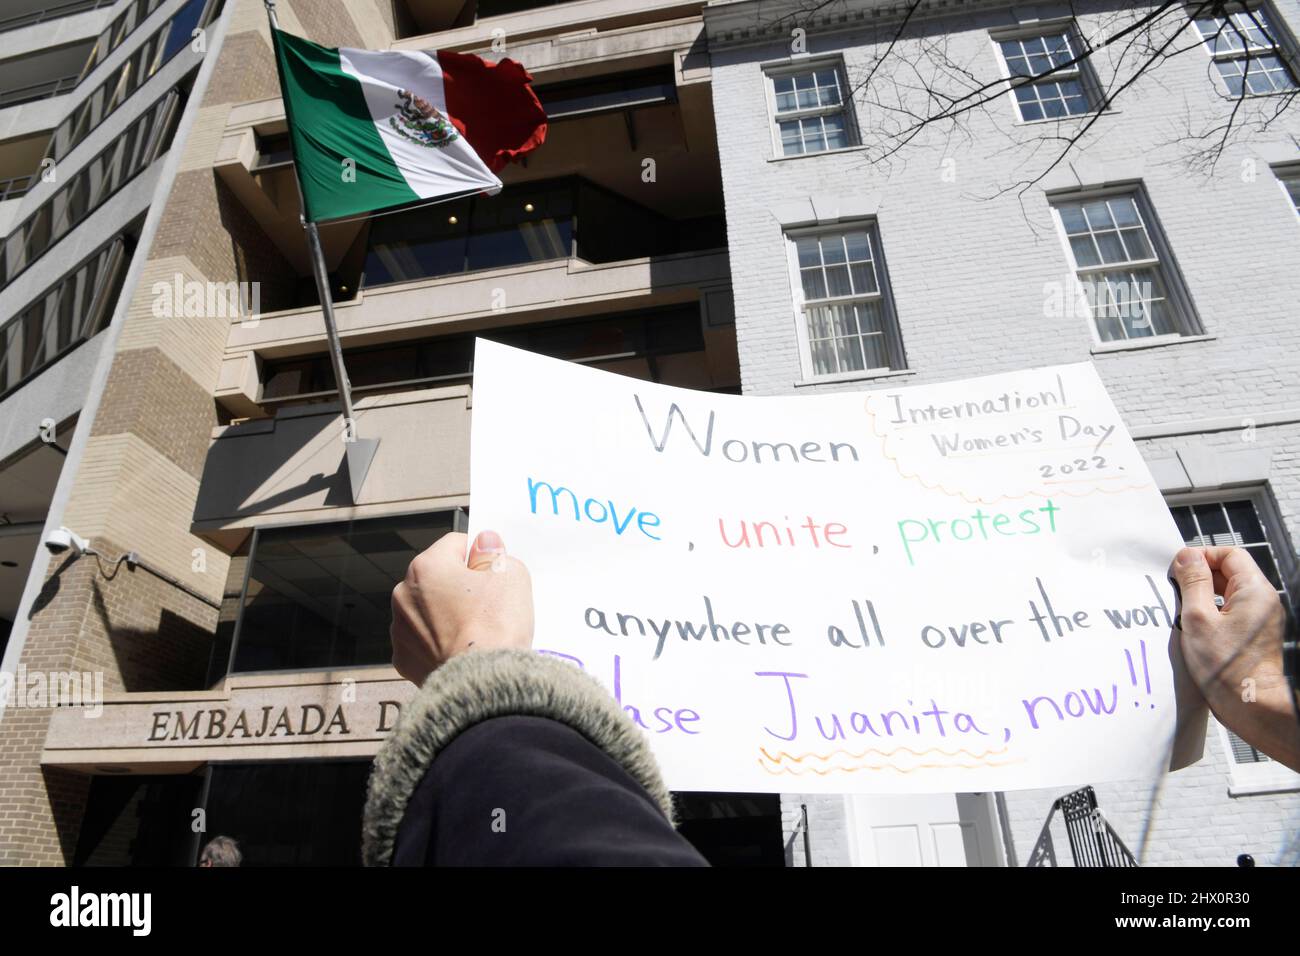 EMBAJADA D
Women
Internationl
Women's Day
2022.
move, unite, protest
anywhere all over the worl
lase Juanita, now!!
alamy
Image ID: 2HX0R30
www.alamy.com